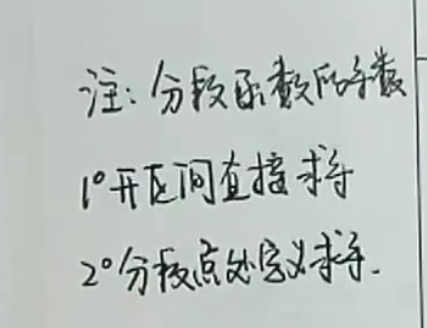 注:分段函数的导数
1°开区间直接求导
2°分段点处定义求导.